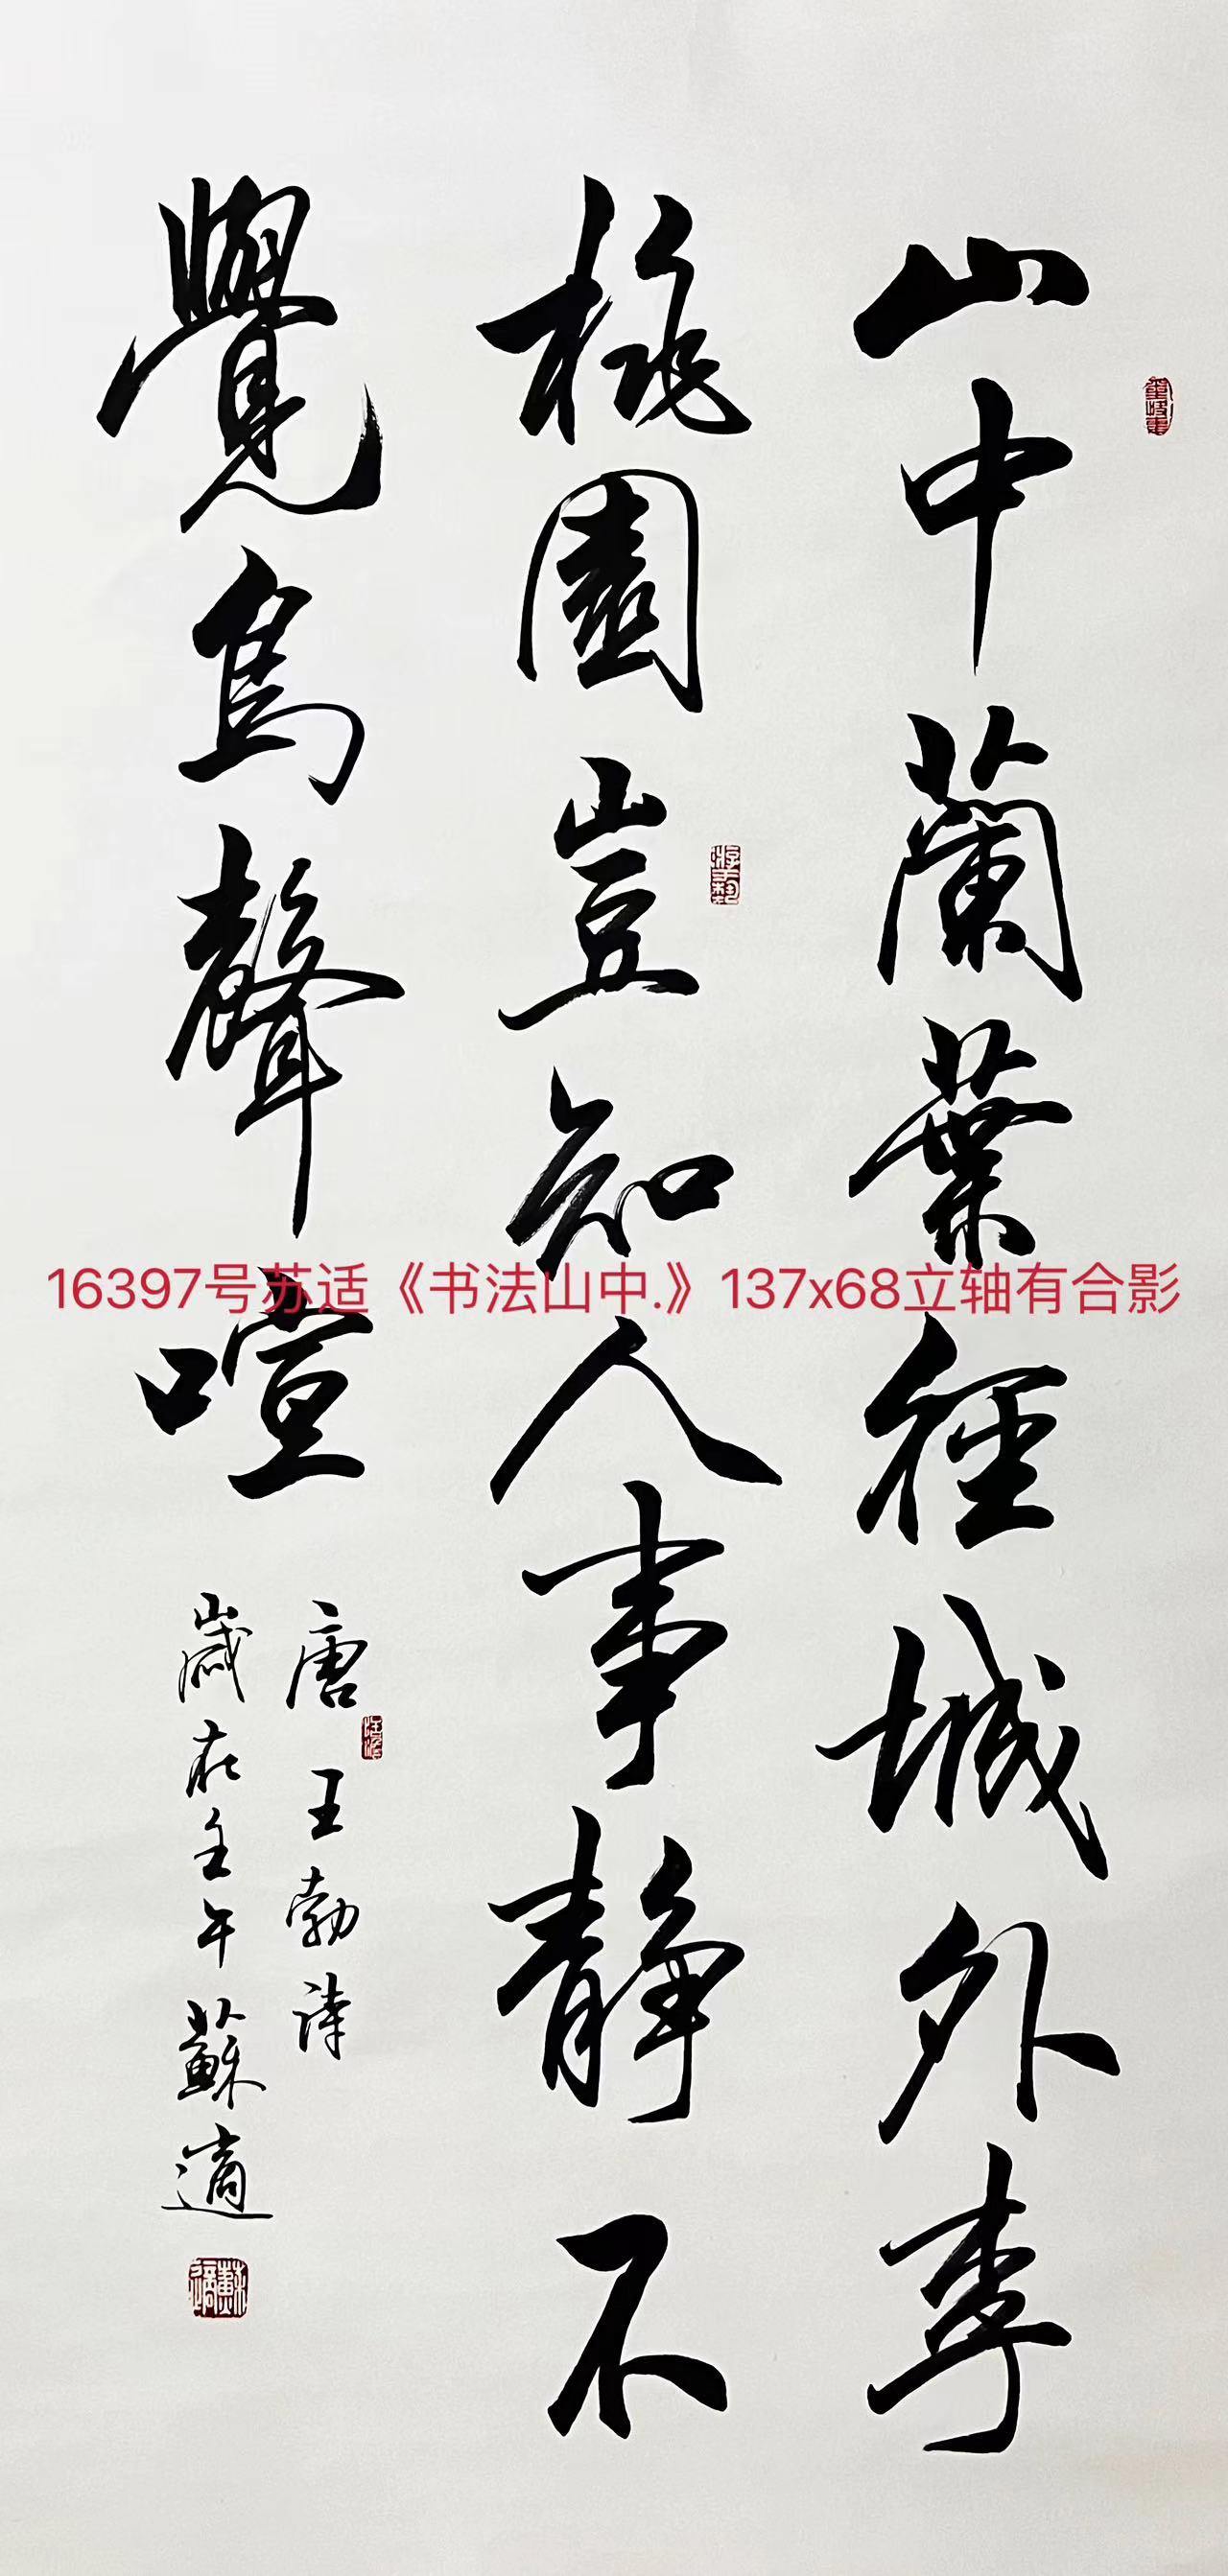 山中蘭葉徑城外李
桃園豈知人事静不
覺鳥聲喧
唐王勃詩
歲在壬午蘇適
蘇適
16397号苏适《书法山中.》137x68立轴有合影